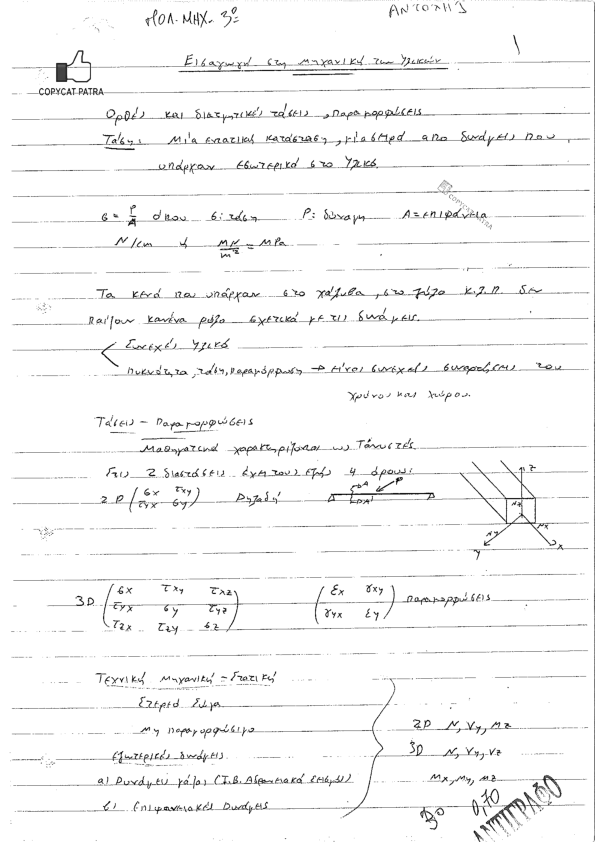 ΠΟΛ. ΜΗΧ. 3º
ΑΝΤΟΧΗ
1
COPYCAT PATRA
Εισαγωγή στη Μηχανική των Υλικών
Ορθές και διατμητικές τάσεις, παραμορφώσεις
Τάση: Μία εντατική κατάσταση, μέσα από δυνάμεις που
υπάρχουν εσωτερικά στο Υλικό.
COPYCAT PATRA
σ = P/A όπου σ: τάση P: δύναμη A = επιφάνεια
N/cm ή MN/m² = MPa
Τα κενά που υπάρχουν στο χάλυβα, στο ξύλο κ.λ.π δεν
παίζουν κανένα ρόλο σχετικά με τις δυνάμεις.
Συνεχές Υλικό
πυκνότητα, τάση, παραμόρφωση → είναι συνεχείς συναρτήσεις του
χρόνου και χώρου.
Τάσεις - Παραμορφώσεις
Μαθηματικά χαρακτηρίζονται ως Τανυστές.
Στις 2 διαστάσεις έχει τους εξής 4 όρους
2D (σx τxy
τyx σy) Δηλαδή
ΔA P
ΔA'
z
Nz
Ny Nx
y x
3D (σx τxy τxz
τyx σy τyz
τzx τzy σz)
(εx γxy
γyx εy) παραμορφώσεις
Τεχνική Μηχανική - Στατική
Στερεό Σώμα
μη παραμορφώσιμο
εξωτερικές δυνάμεις
α) Δυνάμεις μάζας (Ι.Β. Αδρανειακά σεισμός)
β) Επιφανειακές Δυνάμεις
2D N, Vy, Mz
3D N, Vy, Vz
Mx, My, Mz
3º 0,70
ΑΝΤΙΓΡΑΦΟ